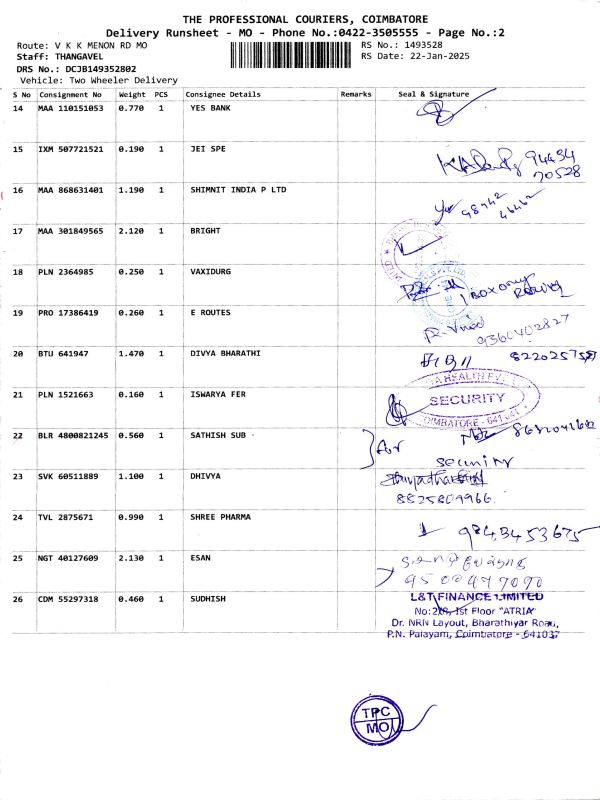 THE PROFESSIONAL COURIERS, COIMBATORE
Delivery Runsheet - MO - Phone No.:0422-3505555 - Page No.:2
Route: V K K MENON RD MO RS No.: 1493528
Staff: THANGAVEL RS Date: 22-Jan-2025
DRS No.: DCJB149352802
Vehicle: Two Wheeler Delivery
S No Consignment No Weight PCS Consignee Details Remarks Seal & Signature
14 MAA 110151053 0.770 1 YES BANK
15 IXM 507721521 0.190 1 JEI SPE 94434
70528
16 MAA 868631401 1.190 1 SHIMNIT INDIA P LTD
17 MAA 301849565 2.120 1 BRIGHT
18 PLN 2364985 0.250 1 VAXIDURG
19 PRO 17386419 0.260 1 E ROUTES 9360402827
20 BTU 641947 1.470 1 DIVYA BHARATHI
HEALTH
21 PLN 1521663 0.160 1 ISWARYA FER SECURITY
COIMBATORE - 641 041
22 BLR 4800821245 0.560 1 SATHISH SUB for
security
23 SVK 60511889 1.100 1 DHIVYA
8825809966
24 TVL 2875671 0.990 1 SHREE PHARMA 9843453675
25 NGT 40127609 2.130 1 ESAN
9500497090
26 CDM 55297318 0.460 1 SUDHISH L&T FINANCE LIMITED
1st Floor "ATRIA"
Dr. NRN Layout, Bharathiyar Road,
P.N. Palayam, Coimbatore - 641037
TPC
MO